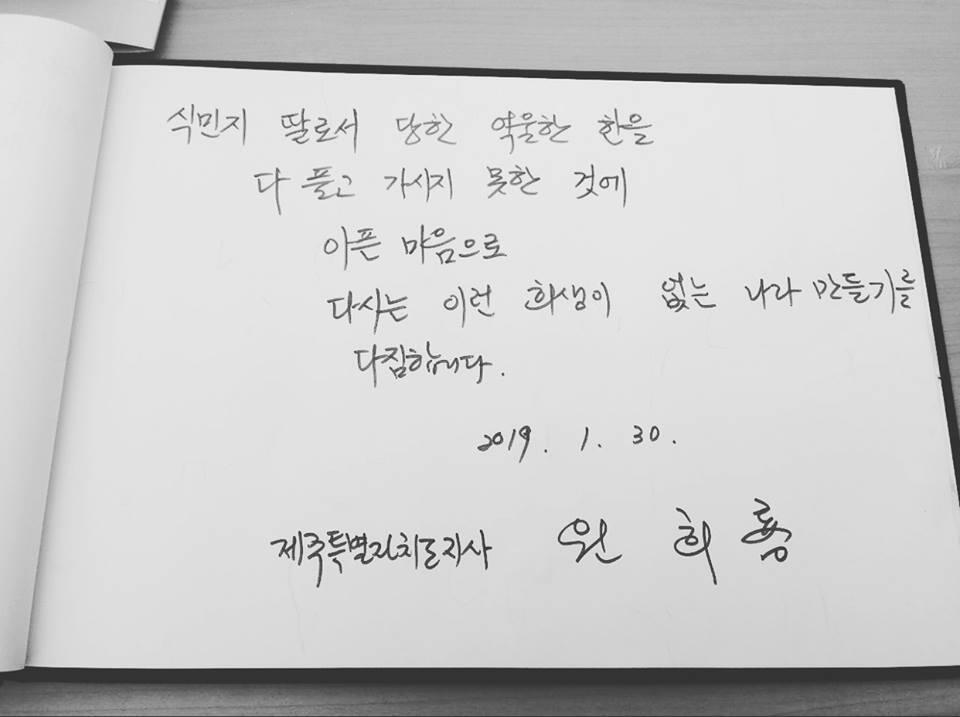 식민지 딸로서 당한 억울한 한을
다 풀고 가시지 못한 것에
아픈 마음으로
다시는 이런 희생이 없는 나라 만들기를
다짐합니다.
2019. 1. 30.
제주특별자치도지사 원희룡